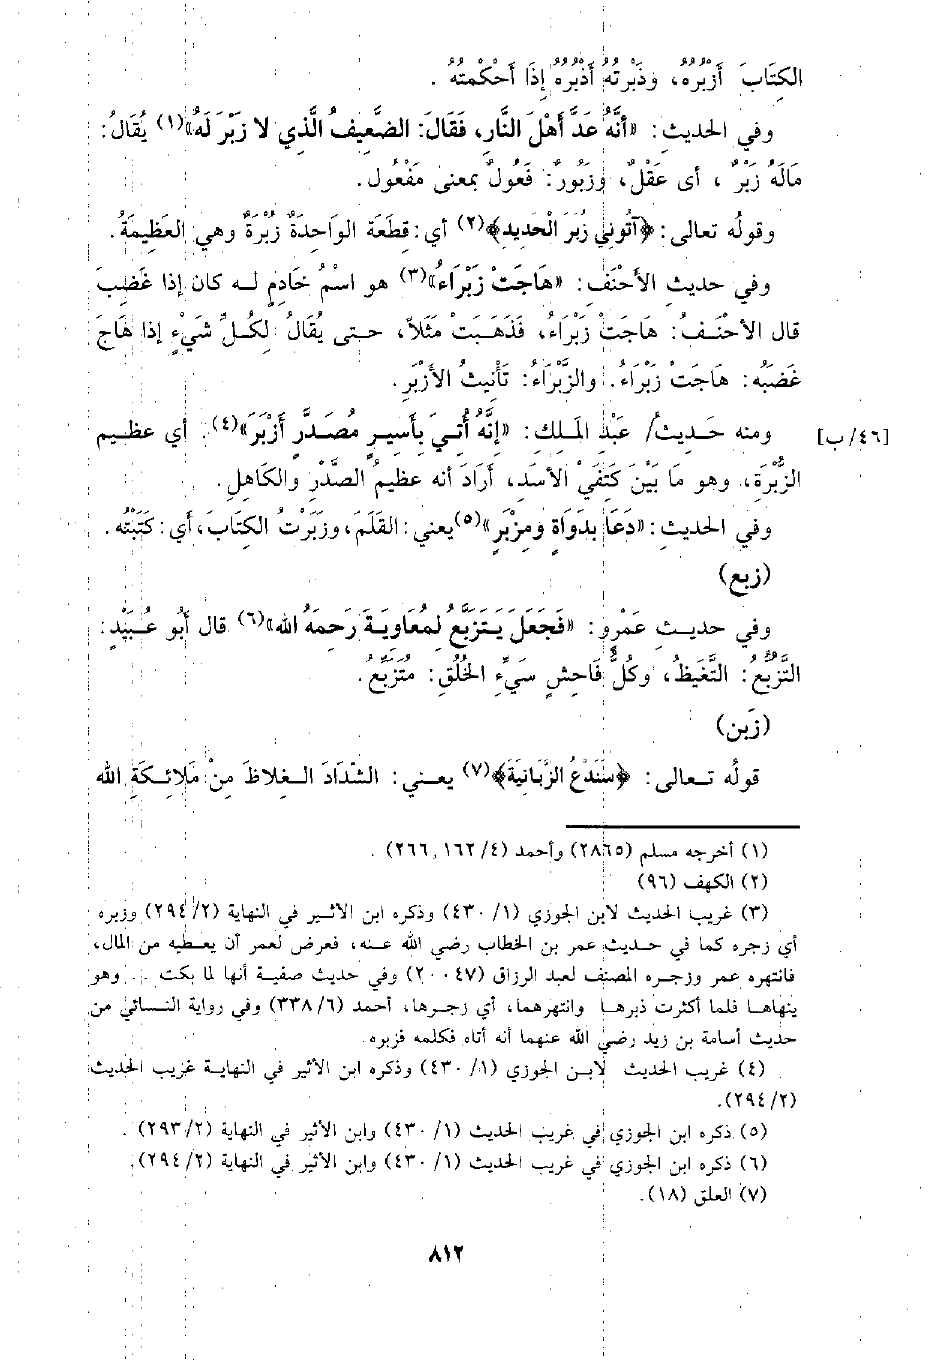 الكتَابَ أَزْبُرُهُ، وذَبَرْتُه أَذْبُرُهُ إذَا أَحْكَمْتُهُ .
وفي الحديث: «أنَّهُ عَدَّ أَهْلَ النَّارِ، فَقَالَ: الضَّعِيفُ الَّذي لا زَبْرَ لَهُ»(١) يُقَالُ:
مَالَهُ زَبْرٌ ، أى عَقْلٌ، وزَبُورٌ: فَعُولٌ بمعنى مَفْعُول.
وقولُه تعالى: ﴿آتُوني زُبَرَ الْحَديد﴾(٢) أي: قطَعَة الوَاحِدَةُ زُبْرَةٌ وهي العَظيمَةُ.
وفي حديث الأحْنَف: «هَاجَتْ زَبْرَاءُ»(٣) هو اسْمُ خَادِمٍ لـه كان إذا غَضِبَ
قال الأحْنَـفُ: هَاجَتْ زَبْرَاءُ، فَذَهَبَتْ مَثَلاً، حـتى يُقَالُ لكُـلِّ شَيْءٍ إذا هَاجَ
غَضَبُه: هَاجَتْ زَبْرَاءُ. والزَّبْرَاءُ: تَأنيثُ الأَزْبَرِ.
ومنه حَـديثُ/ عَبْد المَـلِك: «إنَّهُ أُتـيَ بأسِـيرٍ مُصَـدَّرٍ أَزْبَرَ»(٤). أي عظـيم [٤٦/ب]
الزُّبْرَة، وهو مَا بَيْنَ كَتِفَيْ الأسَد، أرَادَ أنه عظيمُ الصَّدْرِ والكَاهِلِ.
وفي الحديث: «دَعَا بدَوَاة ومِزْبَرٍ»(٥) يعني: القَلَمَ، وزَبَرْتُ الكتَابَ، أي: كَتَبْتُه.
(زبع)
وفي حديـث عَمْرٍو: «فَجَعَلَ يَـتَزَبَّعُ لمُعَاوِيَـةَ رَحِمَهُ الله»(٦) قال أَبُو عُـبَيْدٍ:
التَّزَبُّعُ: التَّغَيظُ، وكُلُّ فَاحِشٍ سَيِّءِ الخُلُقِ: مُتَزَبِّعٌ.
(زبن)
قولُه تـعالى: ﴿سَنَدْعُ الزَّبَانيَةَ﴾(٧) يعـني: الشِّدَادَ الـغلاظَ مِنْ مَلائـكَةِ الله
(١) أخرجه مسلم (٢٨٦٥) وأحمد (٤/ ١٦٢ ,٢٦٦) .
(٢) الكهف (٩٦)
(٣) غريب الحديث لابن الجوزي (١/ ٤٣٠) وذكره ابن الأثـير في النهاية (٢/ ٢٩٤) وزبره
أي زجره كما في حـديث عمر بن الخطاب رضي الله عـنه، فعرض لعمر أن يعـطيه من المال،
فانتهره عمر وزجـره المصنف لعبد الرزاق (٢٠٠٤٧) وفي حديث صفيـة أنها لما بكت .. وهو
ينهاهـا فلما أكثرت ذبرهـا وانتهرهمـا، أي زجـرها، أحمد (٦/ ٣٣٨) وفي رواية النـسائي من
حديث أسامة بن زيد رضي الله عنهما أنه أتاه فكلمه فزبره.
(٤) غريب الحديث لابـن الجوزي (١/ ٤٣٠) وذكره ابن الأثير في النهايـة غريب الحديث
(٢/ ٢٩٤).
(٥) ذكره ابن الجوزي في غريب الحديث (١/ ٤٣٠) وابن الأثير في النهاية (٢/ ٢٩٣) .
(٦) ذكره ابن الجوزي في غريب الحديث (١/ ٤٣٠) وابن الأثير في النهاية (٢/ ٢٩٤).
(٧) العلق (١٨).
٨١٢